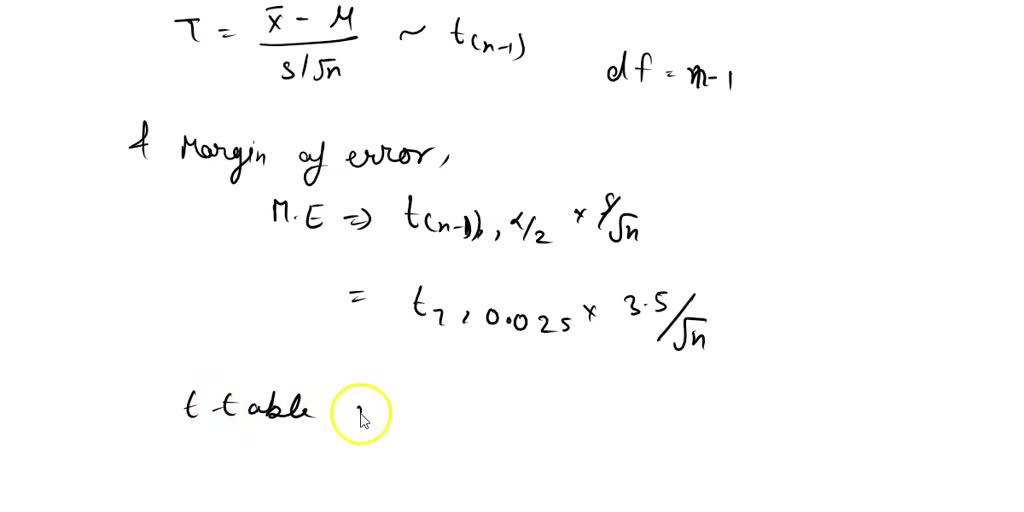 T = x̄ - μ / s/√n ~ t(n-1)
df = n-1
& Margin of error,
M.E => t(n-1), α/2 × s/√n
= t7, 0.025 × 3.5/√n
t table